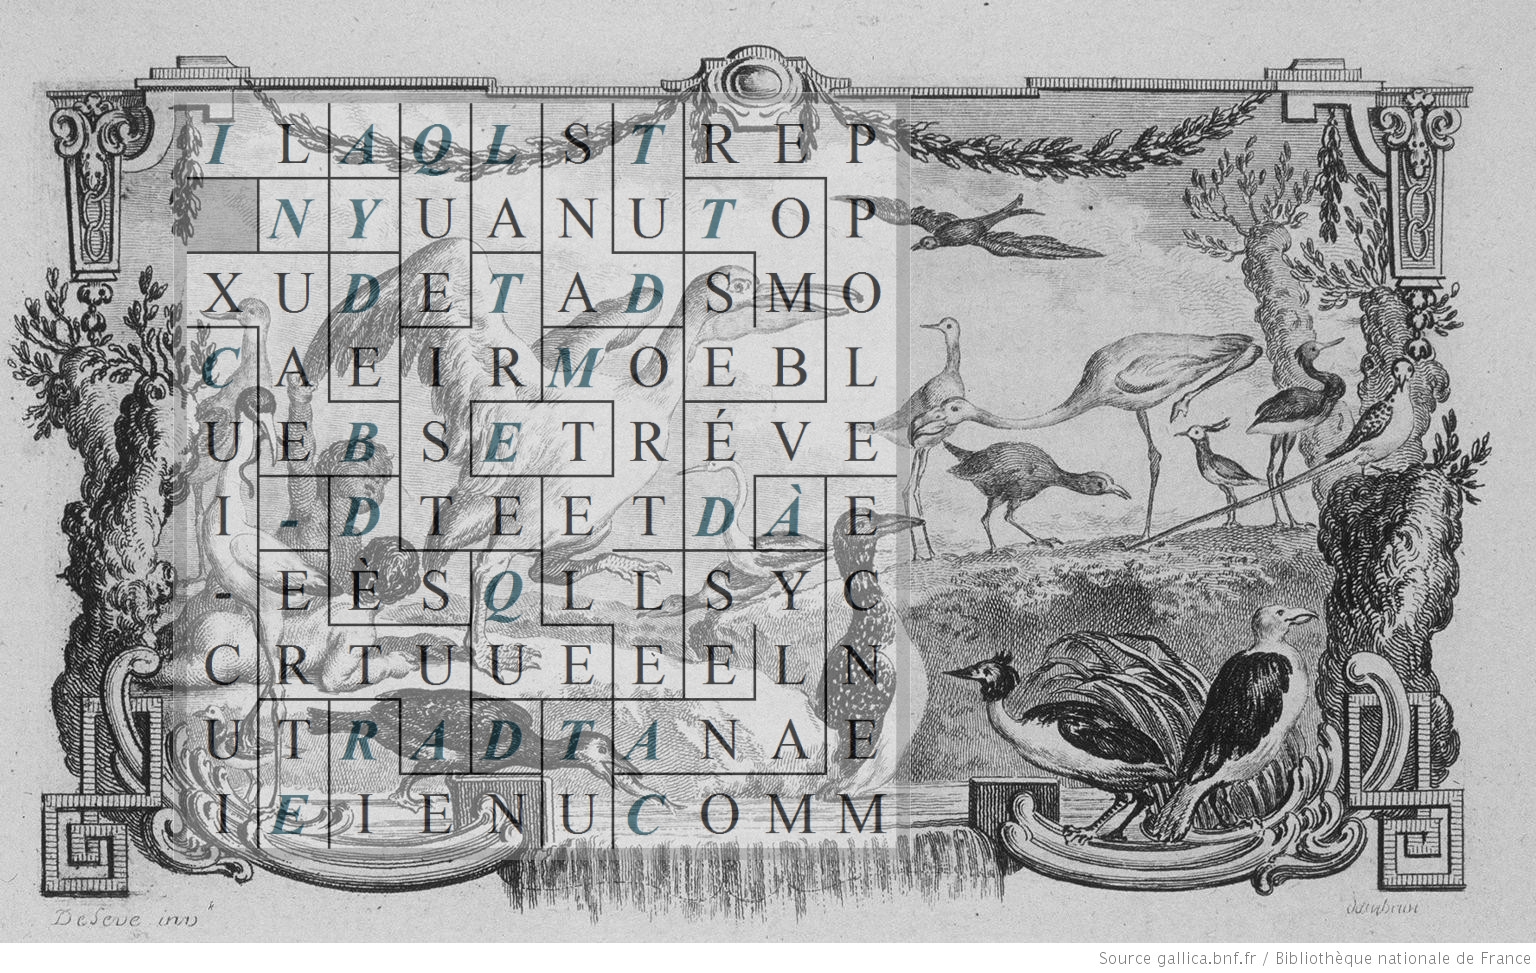 I L A Q L S T R E P
N Y U A N U T O P
X U D E T A D S M O
C A E I R M O E B L
U E B S E T R É V E
I - D T E E T D À E
- E È S Q L L S Y C
C R T U U E E E L N
U T R A D T A N A E
I E I E N U C O M M
Deseve inv
Source gallica.bnf.fr / Bibliothèque nationale de France